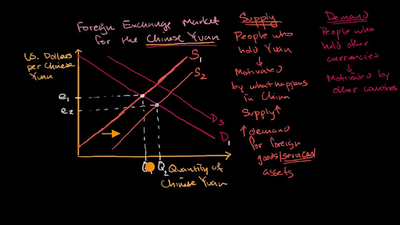 Foreign Exchange Market
for the Chinese Yuan
US. Dollars
per Chinese
Yuan
S1
S2
e1
e2
D3
D1
Q2
Quantity of
Chinese Yuan
Supply
People who
hold Yuan
Motivated
by what happens
in China
Supply↑
↑ demand
for foreign
goods/services/
assets
Demand
People who
hold other
currencies
Motivated by
other countries